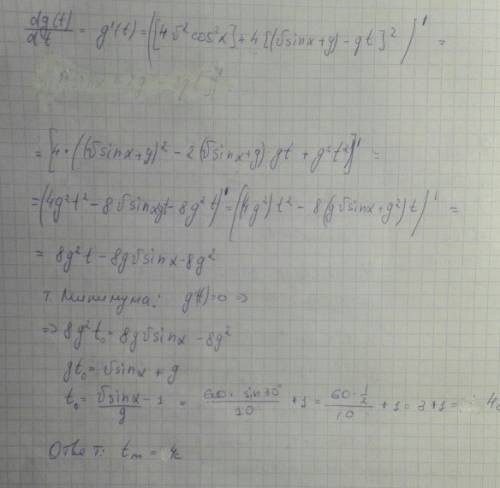 dg(t)/dt = g'(t) = ([4υ²cos²α] + 4[(υsinα+g) - gt]²)' =
= [4·((υsinα+g)² - 2(υsinα+g)gt + g²t²)]' =
= (4g²t² - 8υsinαgt - 8g²t)' = ((4g²)t² - 8(gυsinα+g²)t)' =
= 8g²t - 8gυsinα - 8g²
т. минимума: g'(t)=0 =>
=> 8g²t₀ = 8gυsinα - 8g²
gt₀ = υsinα + g
t₀ = υsinα/g - 1 = 60·sin30°/10 + 1 = 60·½/10 + 1 = 3+1 = 4c
Ответ: tₘ = 4c